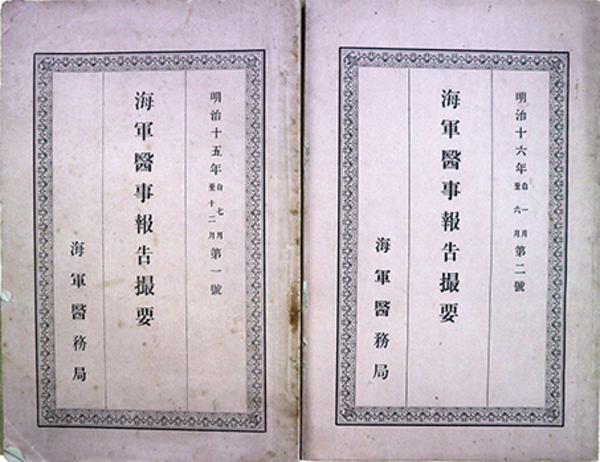 明治十五年自七月至十二月第一號
海軍醫事報告撮要
海軍醫務局
明治十六年自一月至六月第二號
海軍醫事報告撮要
海軍醫務局